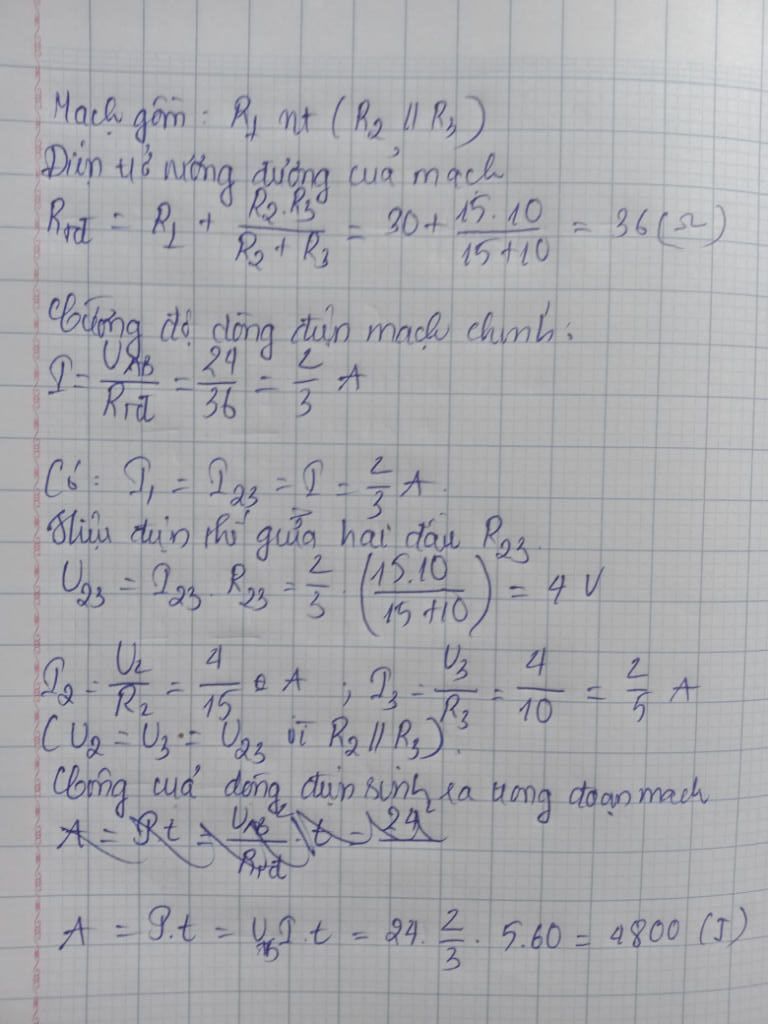 Mạch gồm : R₁ nt ( R₂ // R₃ )
Điện trở tương đương của mạch
Rtđ = R₁ + \frac{R₂.R₃}{R₂ + R₃} = 30 + \frac{15.10}{15+10} = 36 (Ω)
Cường độ dòng điện mạch chính :
I = \frac{U_{AB}}{Rtđ} = \frac{24}{36} = \frac{2}{3} A
Có : I₁ = I₂₃ = I = \frac{2}{3} A.
Hiệu điện thế giữa hai đầu R₂₃.
U₂₃ = I₂₃ . R₂₃ = \frac{2}{3} . (\frac{15.10}{15+10}) = 4 V
I₂ = \frac{U₂}{R₂} = \frac{4}{15} A ; I₃ = \frac{U₃}{R₃} = \frac{4}{10} = \frac{2}{5} A
( U₂ = U₃ = U₂₃ vì R₂ // R₃ ).
Công của dòng điện sinh ra trong đoạn mạch
A = P.t = \frac{U_{AB}²}{Rtđ} . t = 24²
A = P.t = U_{AB}I.t = 24. \frac{2}{3} . 5.60 = 4800 (J)